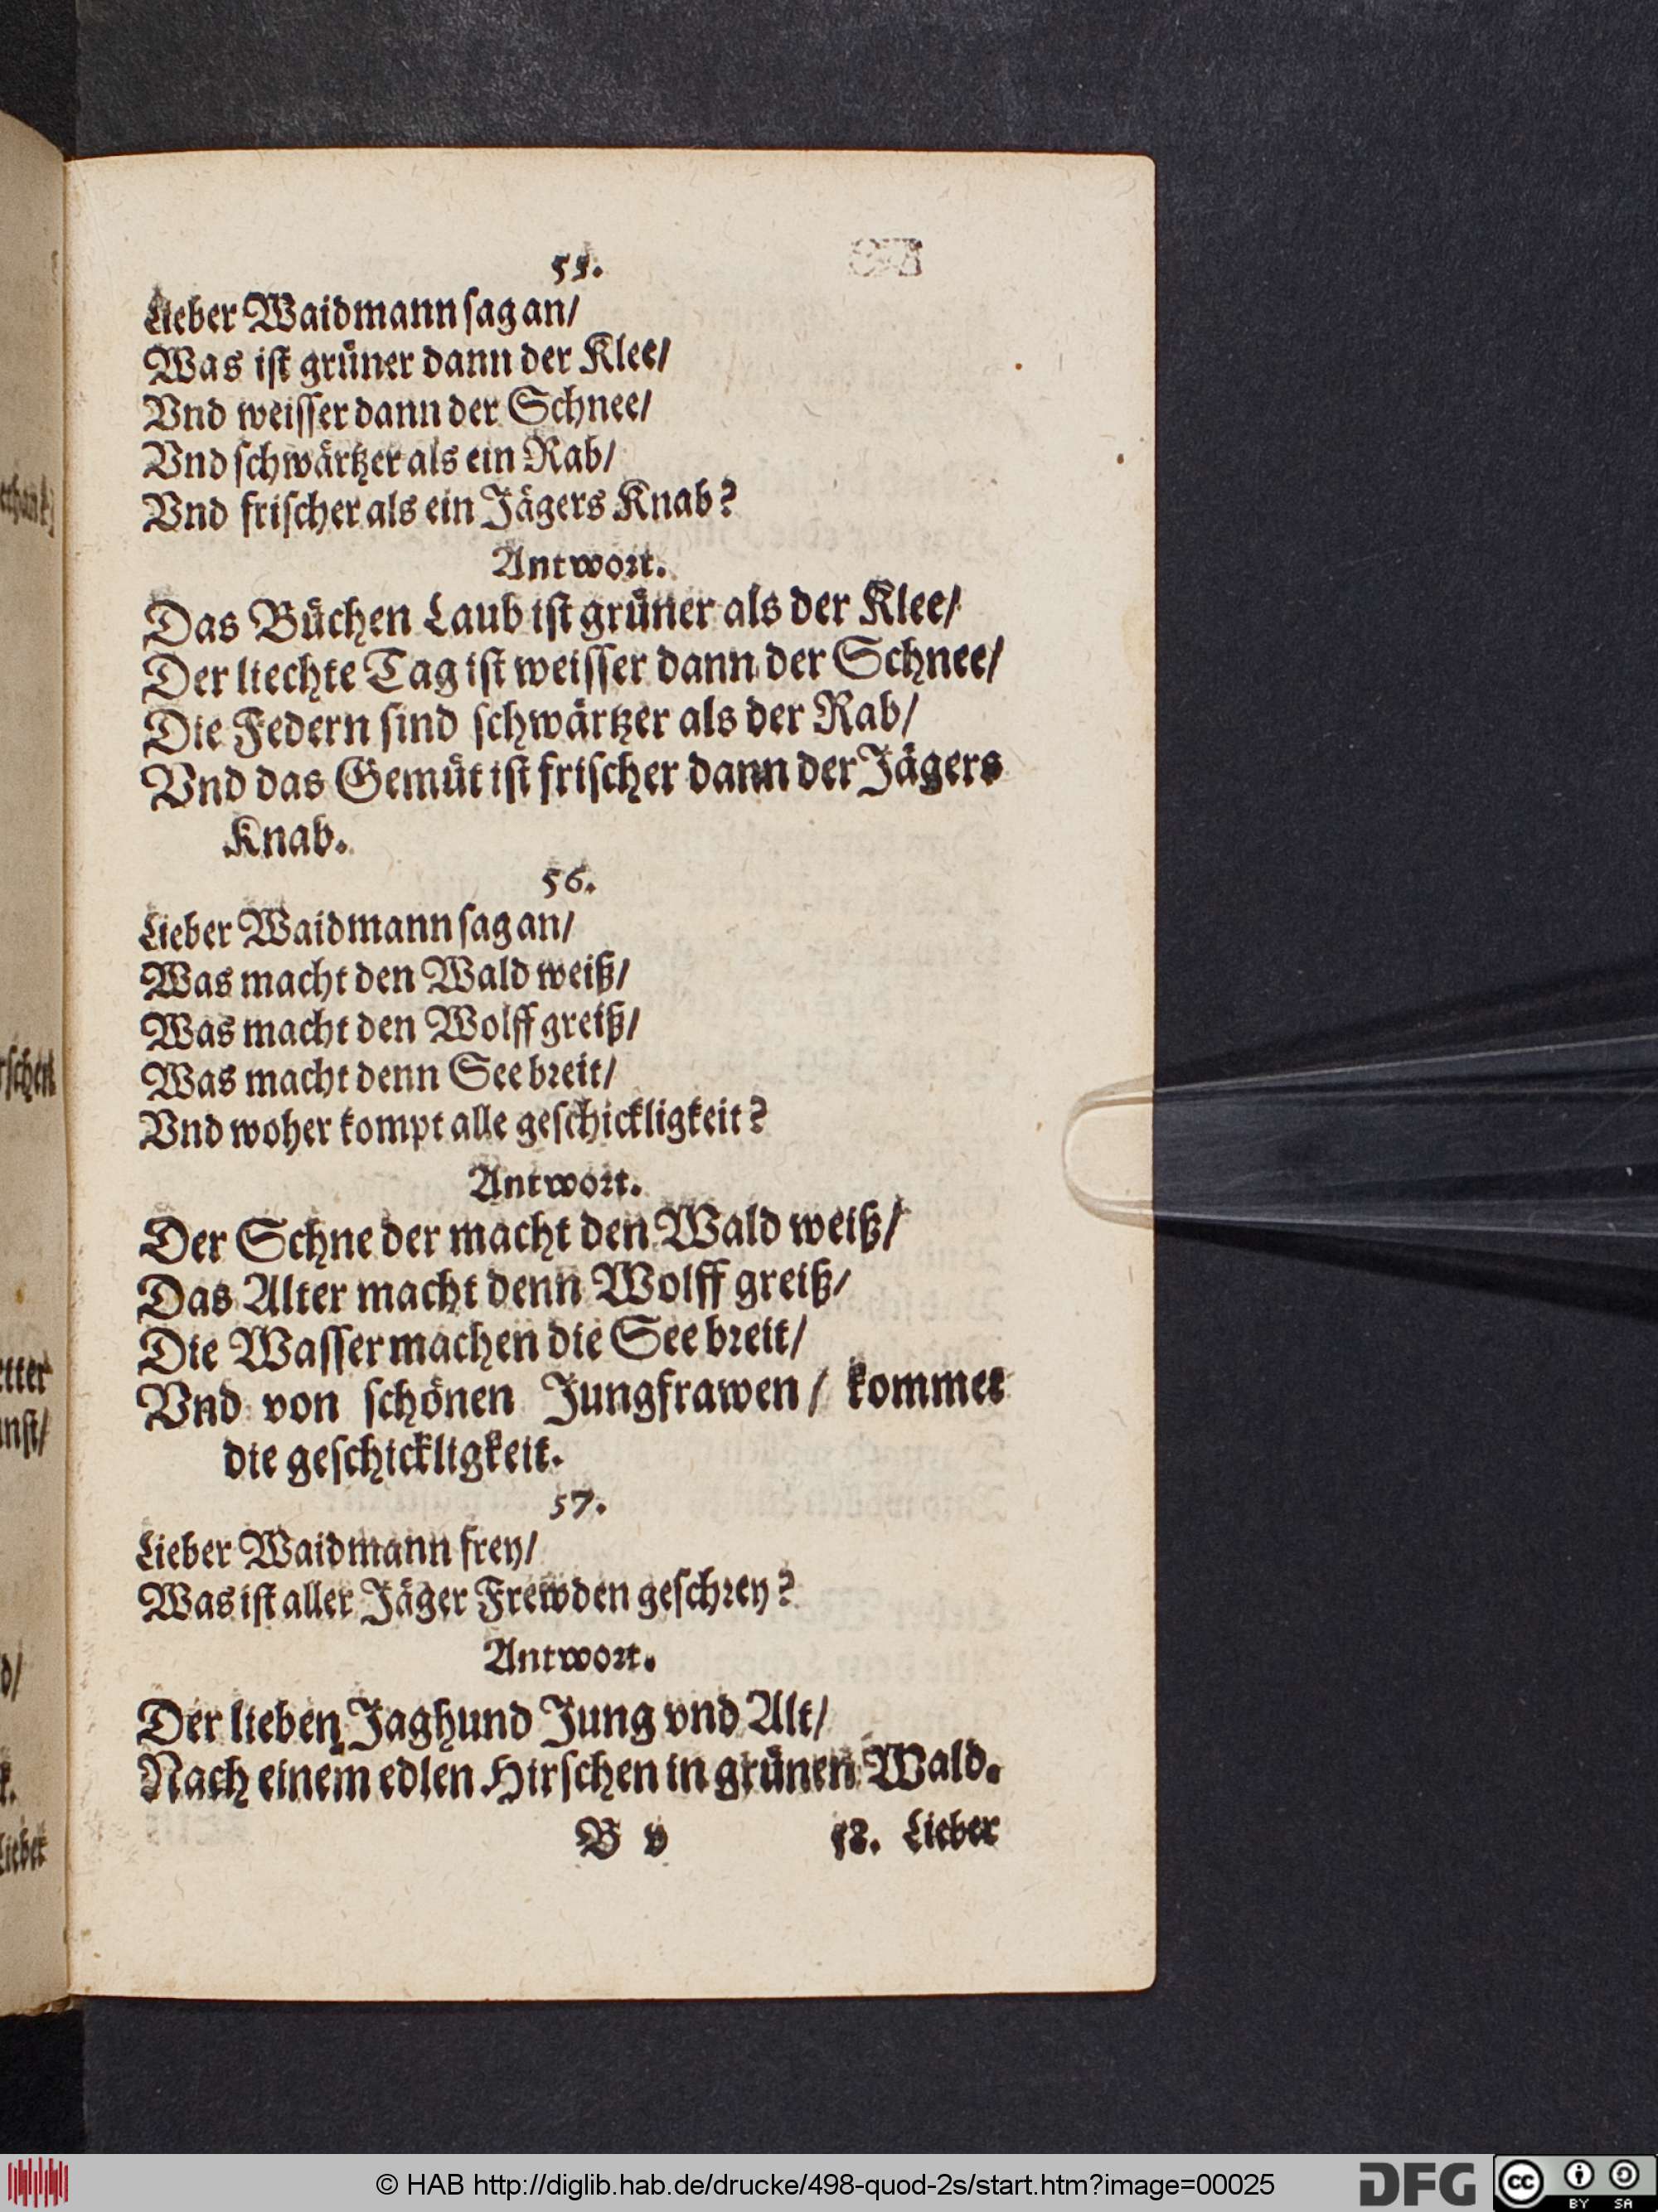 55.
Lieber Waidmann ſag an/
Was iſt gruͤner dann der Klee/
Vnd weiſſer dann der Schnee/
Vnd ſchwaͤrtzer als ein Rab/
Vnd friſcher als ein Jaͤgers Knab?
Antwort.
Das Buͤchen Laub iſt gruͤner als der Klee/
Der liechte Tag iſt weiſſer dann der Schnee/
Die Federn ſind ſchwaͤrtzer als der Rab/
Vnd das Gemuͤt iſt friſcher dann der Jaͤgers
Knab.
56.
Lieber Waidmann ſag an/
Was macht den Wald weiß/
Was macht den Wolff greiß/
Was macht denn See breit/
Vnd woher kompt alle geſchickligkeit?
Antwort.
Der Schne der macht den Wald weiß/
Das Alter macht denn Wolff greiß/
Die Waſſer machen die See breit/
Vnd von ſchoͤnen Jungfrawen/ kommet
die geſchickligkeit.
57.
Lieber Waidmann frey/
Was iſt aller Jaͤger Frewden geſchrey?
Antwort.
Der lieben Jaghund Jung vnd Alt/
Nach einem edlen Hirſchen in gruͤnen Wald.
B v 58. Lieber
© HAB http://diglib.hab.de/drucke/498-quod-2s/start.htm?image=00025
DFG
cc BY SA